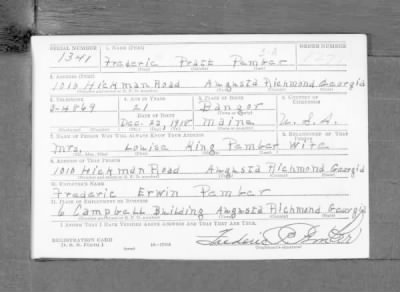 SERIAL NUMBER 1. NAME (Print) ORDER NUMBER
1341 Frederic Pratt Pember
(First) (Middle) (Last)
2. ADDRESS (Print)
1010 Hickman Road Augusta Richmond Georgia
3. TELEPHONE 4. AGE IN YEARS 5. PLACE OF BIRTH 6. COUNTRY OF CITIZENSHIP
2-4869 21 Bangor
DATE OF BIRTH
Dec. 23, 1918 Maine U.S.A.
7. NAME OF PERSON WHO WILL ALWAYS KNOW YOUR ADDRESS 8. RELATIONSHIP OF THAT PERSON
Mrs. Louise King Pember Wife
9. ADDRESS OF THAT PERSON
1010 Hickman Road Augusta Richmond Georgia
10. EMPLOYER'S NAME
Frederic Erwin Pember
11. PLACE OF EMPLOYMENT OR BUSINESS
6 Campbell Building Augusta Richmond Georgia
I AFFIRM THAT I HAVE VERIFIED ABOVE ANSWERS AND THAT THEY ARE TRUE.
REGISTRATION CARD
D. S. S. FORM 1
(over)
Frederic P. Pember